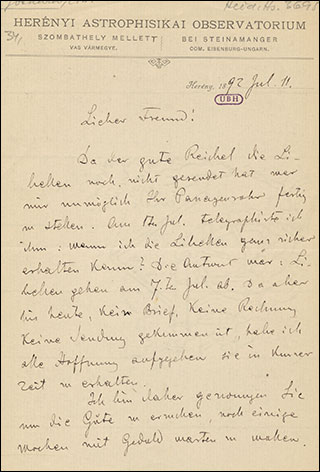 34.
HERÉNYI ASTROPHISIKAI OBSERVATORIUM
SZOMBATHELY MELLETT
VAS VÁRMEGYE.
BEI STEINAMANGER
COM. EISENBURG-UNGARN.
Herény, 1892 Jul. 11.
UBH
Lieber Freund!
Da der gute Reichel die Li-
bellen noch nicht gesendet hat war
mir unmöglich Ihr Passagenrohr fertig
zu stellen. Am 1t. Jul. telegraphirte ich
ihm: wann ich die Libellen ganz sicher
erhalten kann? Die Antwort war: Li-
bellen gehen am 7.t. Jul. ab. Da aber
bis heute, kein Brief, keine Rechnung
keine Sendung gekommen ist, habe ich
alle Hoffnung aufgegeben sie in kurzer
Zeit zu erhalten.
Ich bin daher genzwungen Sie
um die Güte zu ersuchen, noch einige
Wochen mit Geduld warten zu wollen.